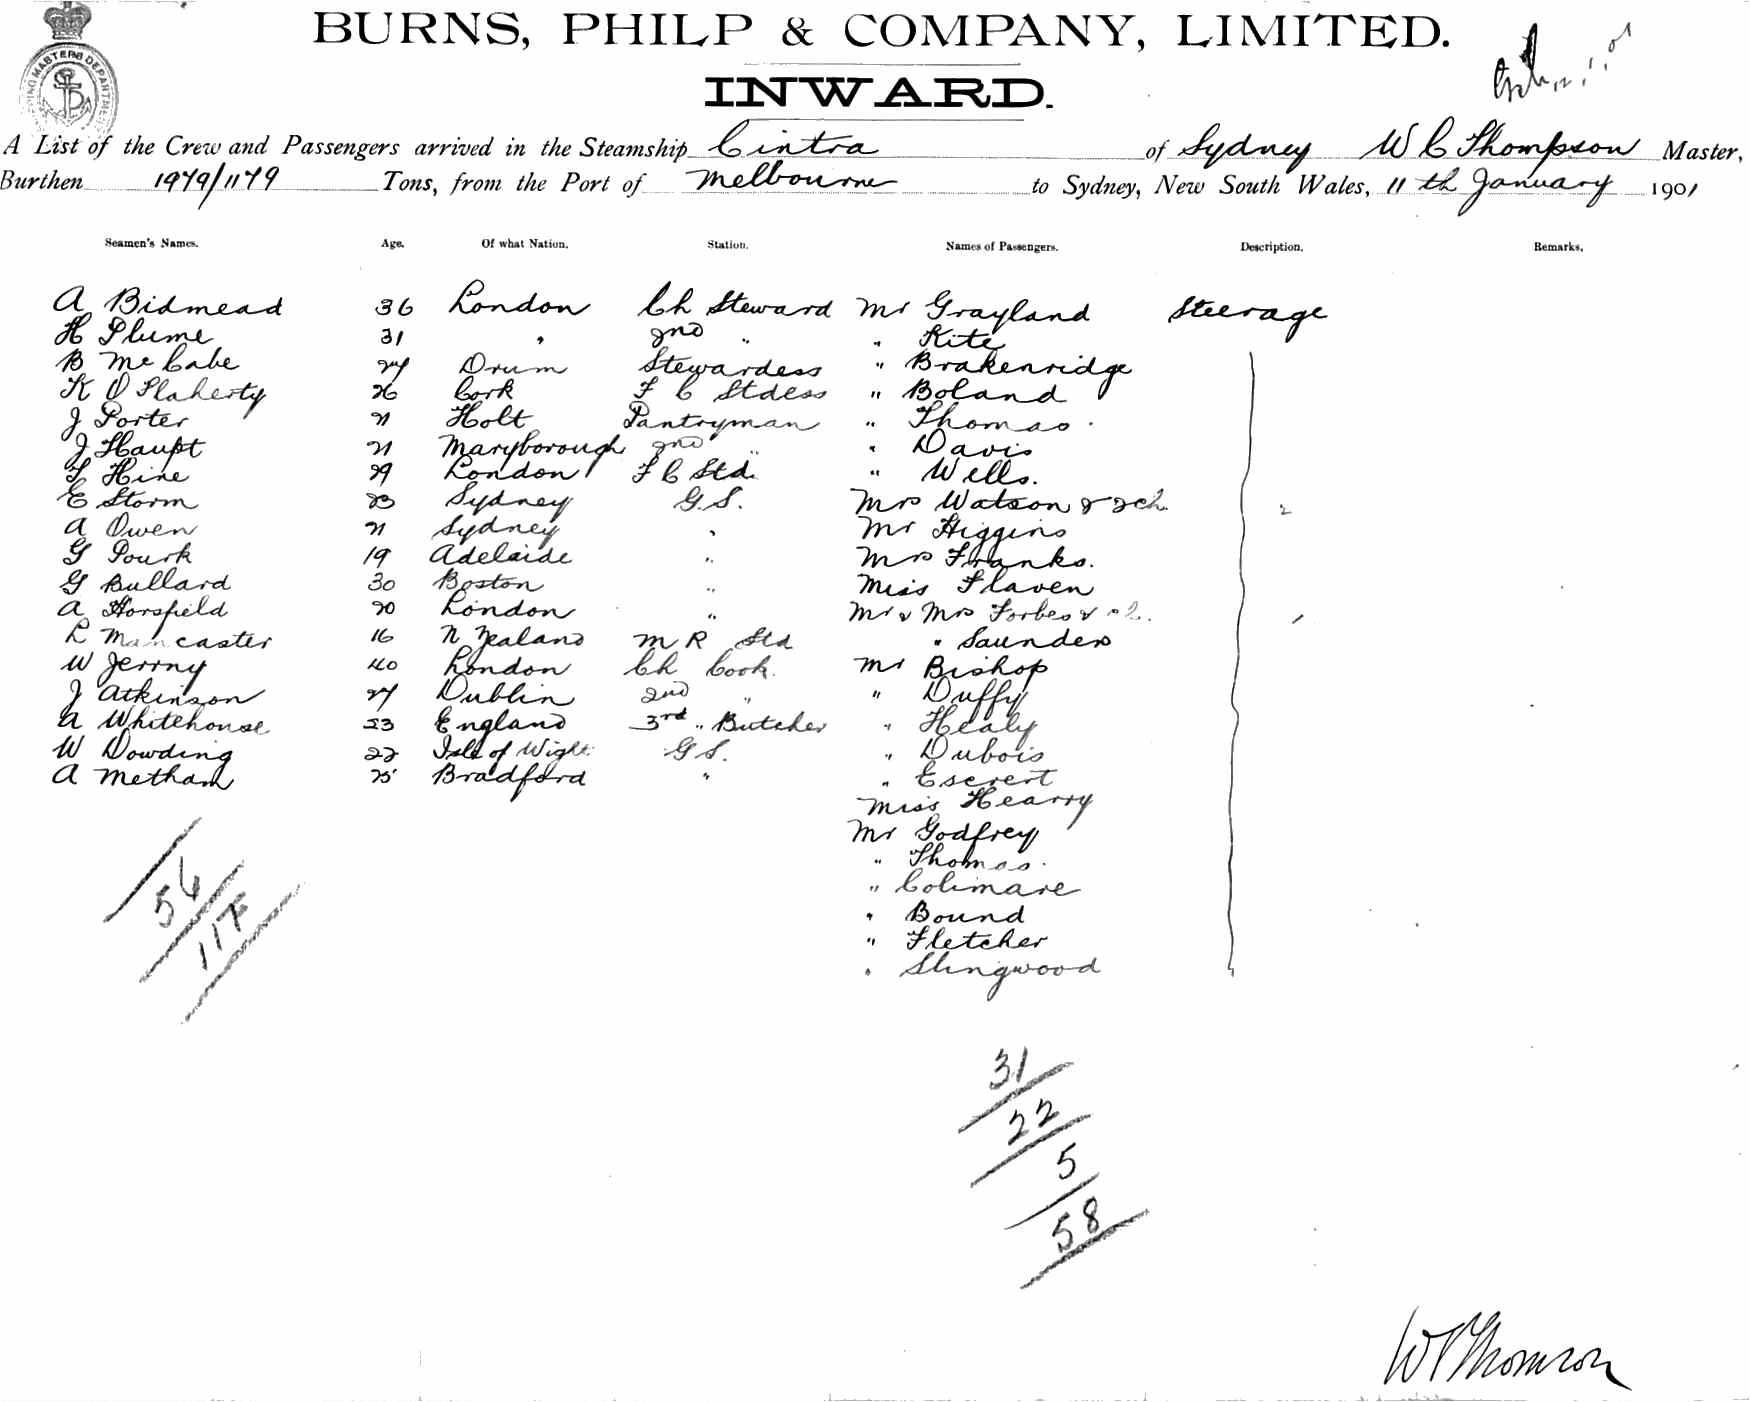 BURNS, PHILP & COMPANY, LIMITED.
INWARD.
A List of the Crew and Passengers arrived in the Steamship Cintra of Sydney W C Thompson Master,
Burthen 1979/1179 Tons, from the Port of Melbourne to Sydney, New South Wales, 11th January 1901
Seamen's Names. Age. Of what Nation. Station. Names of Passengers. Description. Remarks.
A Bidmead 36 London Ch Steward Mr Grayland Steerage
H Plume 31 " 2nd " " Kite
B McCabe 27 Drum Stewardess " Brakenridge
K O Flaherty 26 Cork F C Stdess " Boland
J Porter 21 Holt Pantryman " Thomas
J Haupt 21 Maryborough 2nd " " Davis
Hine 29 London F C Std. " Wells.
E Storm 23 Sydney G.S. Mrs Watson & 2ch 2
A Owen 21 Sydney " Mr Higgins
G Pourk 19 Adelaide " Mrs Franks.
G Bullard 30 Boston " Miss Flaven
A Horsfield 20 London " Mr & Mrs Forbes &
L Mancaster 16 N Zealand M R Std " Saunders
W Jerrny 40 London Ch Cook. Mr Bishop
J Atkinson 27 Dublin 2nd " " Duffy
A Whitehouse 23 England 3rd " Butcher " Healy
W Dowding 22 Isle of Wight G S. " Dubois
A Metham 25 Bradford " " Escrert
Miss Hearry
Mr Godfrey
" Thomas
" Colimare
" Bound
" Fletcher
" Slingwood
56
117
31
22
5
58
W C Thomson